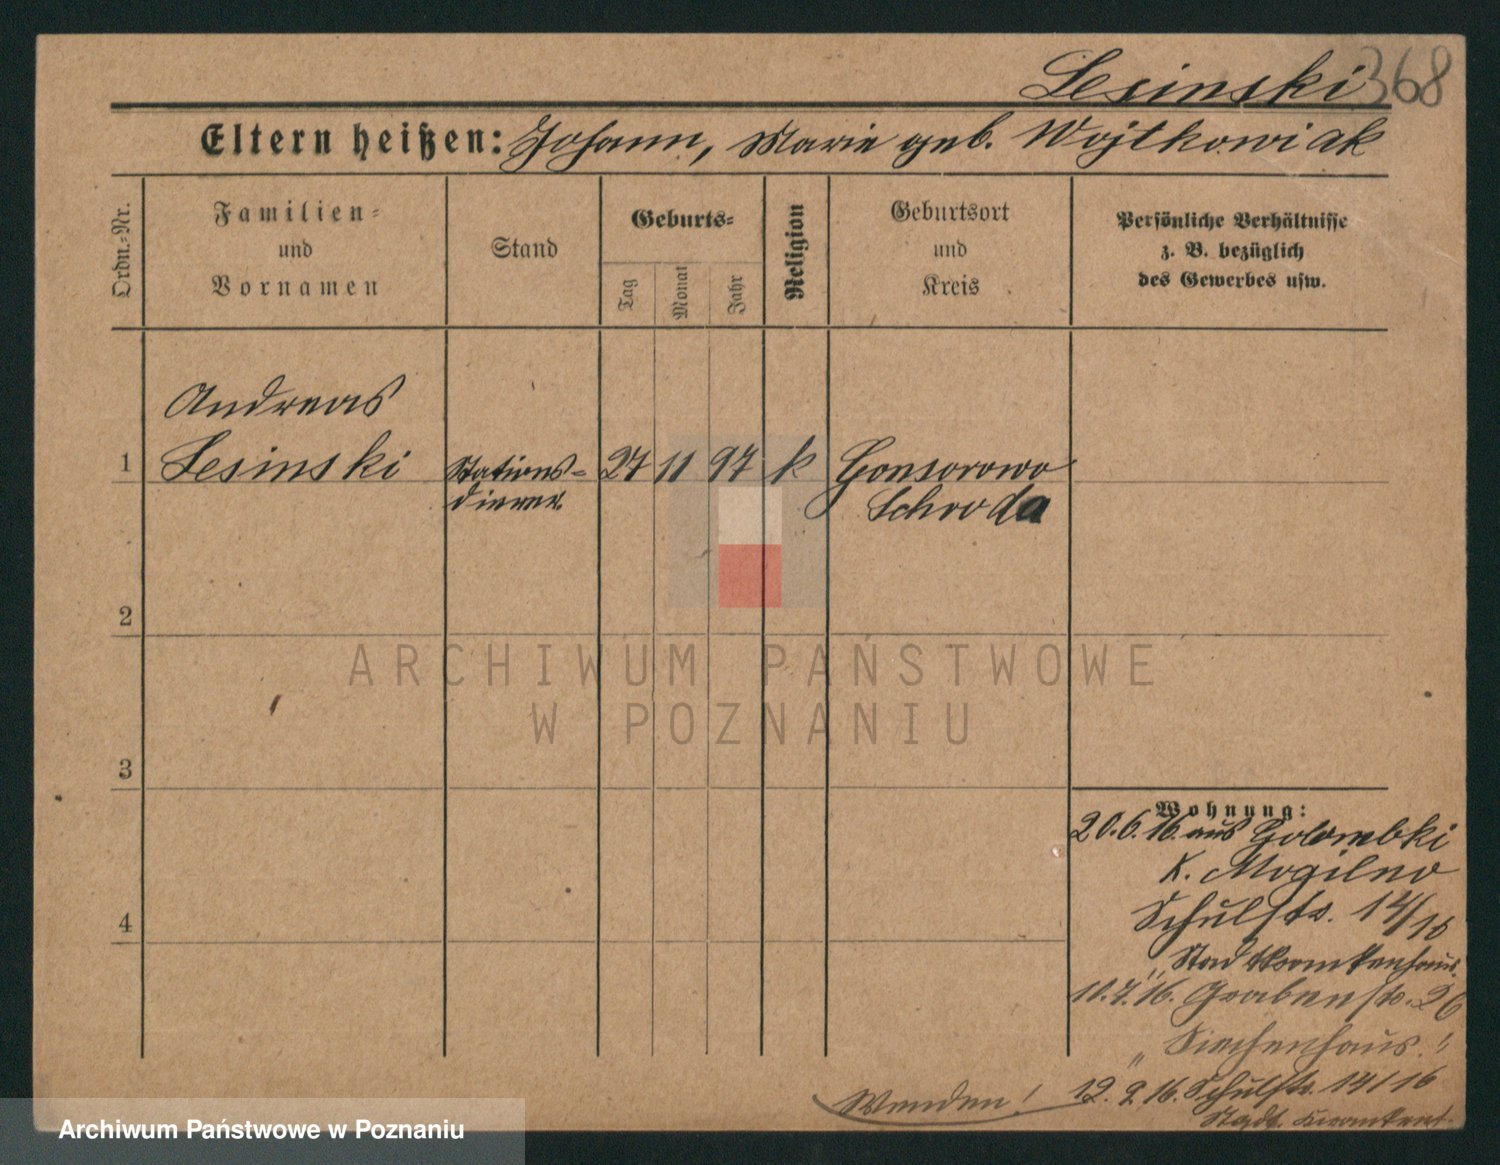 Lesinski 368
Eltern heißen: Johann, Marie geb. Wojtkowiak
Ordn.-Nr.
Familien-
und
Vornamen
Stand
Geburts-
Tag
Monat
Jahr
Religion
Geburtsort
und
Kreis
Persönliche Verhältnisse
z. B. bezüglich
des Gewerbes usw.
Andreas
1 Lesinski Stations- 27 11 97 k Gonsorowo
diener. Schroda
2
ARCHIWUM PAŃSTWOWE
W POZNANIU
3
Wohnung:
20.6.16. aus Golombki
K. Mogilno
Schulstr. 14/16
4
„ Stadtkrankenhaus.
10.7.16. Grabenstr. 26
„ Siechenhaus."
12. 9. 16. Schulstr. 14/16
Wenden!
Stadt. Krankenh.
Archiwum Państwowe w Poznaniu